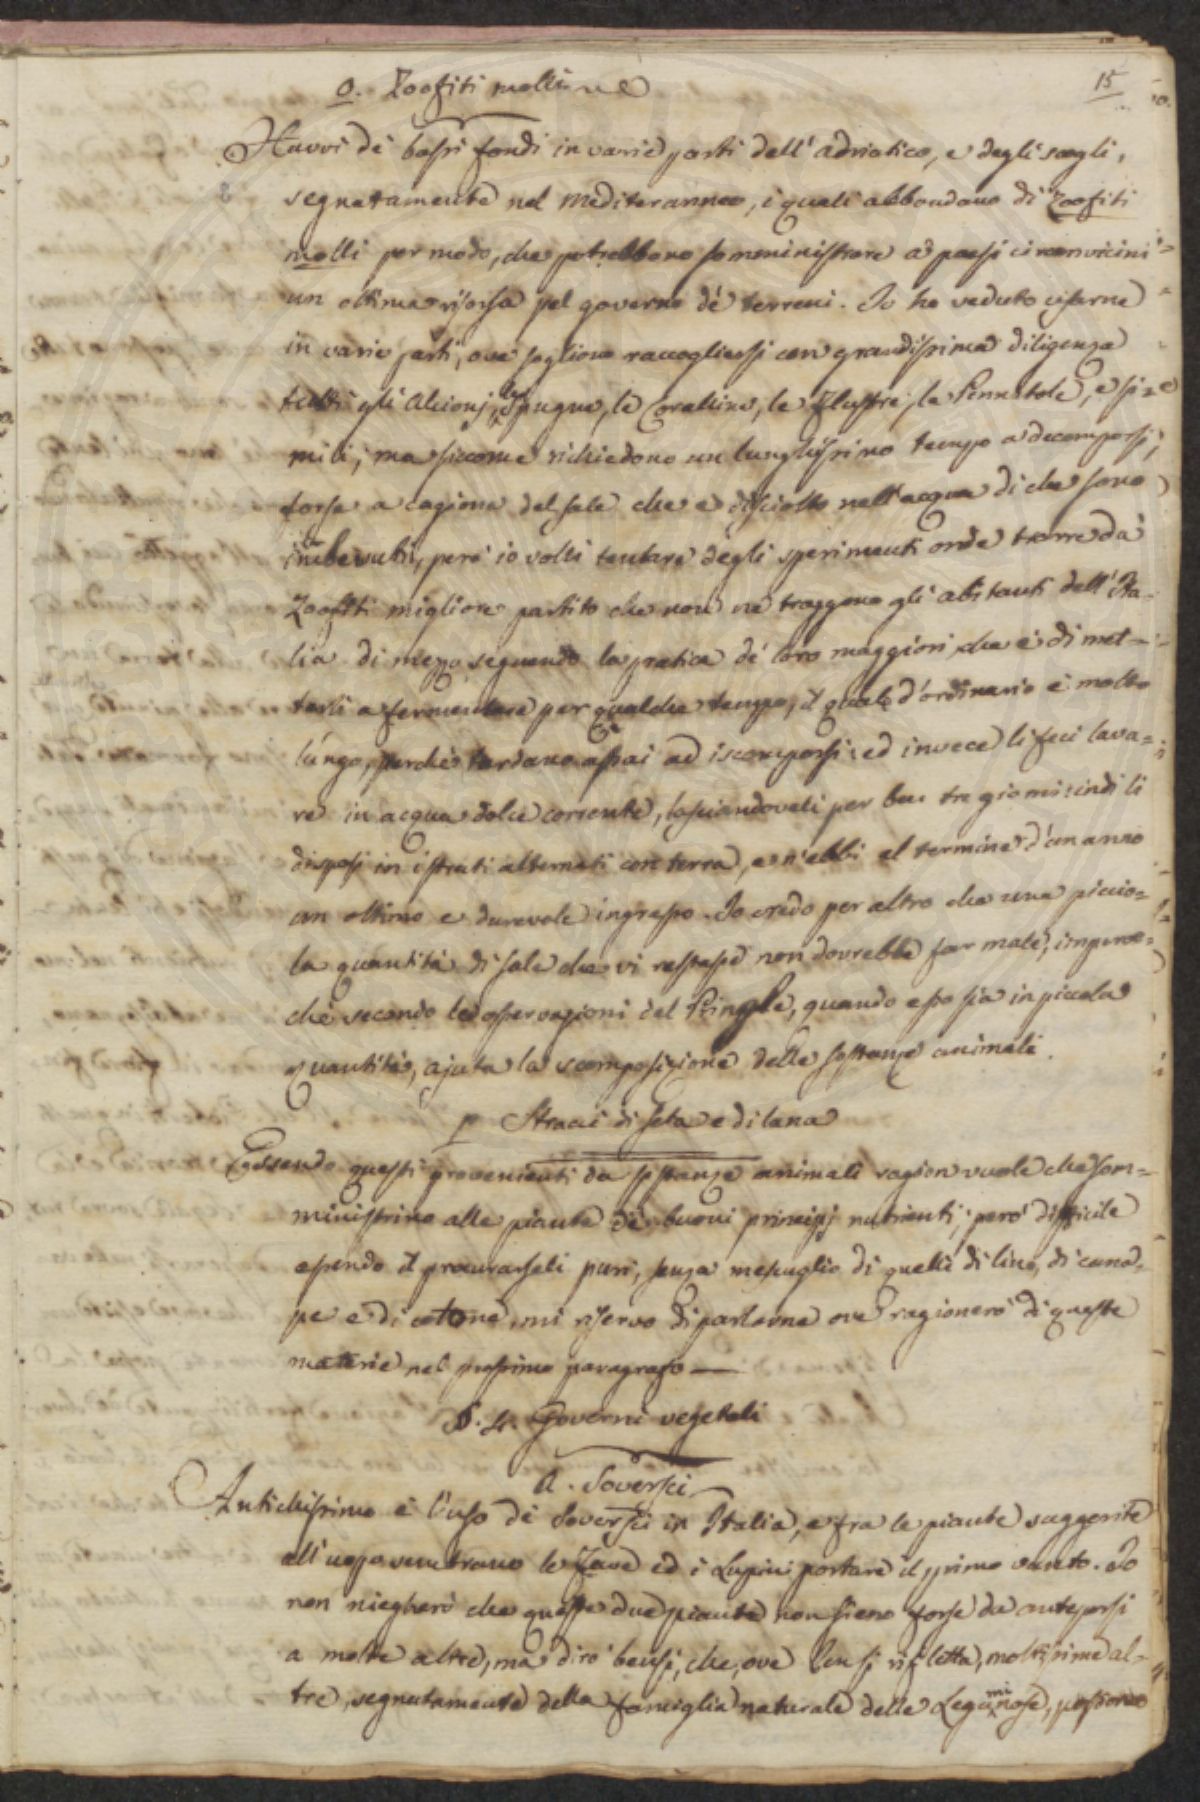 15
o. Zoofiti molli
Havvi de' bassi fondi in varie parti dell'adriatico, e degli scogli,
segnatamente nel Mediteranneo, i quali abbondano di Zoofiti
molli per modo, che potrebbono somministrare a' paesi circonvicini
un ottima risorsa pel governo de' terreni. Io ho veduto esserne
in varie parti, ove sogliono raccogliersi con grandissima diligenza
tutti gli Alcionj, le Spugne, le Coralline, le Flustre, le Pennatole, e si=
mili; ma siccome richiedono un lunghissimo tempo a decomporsi,
forse a cagione del sale che è disciolto nell'acqua di che sono
imbevuti, però io volli tentare degli sperimenti onde trarre da'
Zoofiti migliore partito che non ne traggono gli abitanti dell'Ita-
lia di mezzo seguendo la pratica de' loro maggiori, che è di met-
terli a fermentare per qualche tempo, il quale d'ordinario è molto
lungo, perchè tardano assai ad iscomporsi: ed invece li feci lava=
re in acqua dolce corrente, lasciandoveli per ben tre giorni: indi li
disposi in istrati alternati con terra, e n'ebbi al termine d'un anno
un ottimo e durevole ingrasso. Io credo per altro che una piccio=
la quantità di sale che vi restasse non dovrebbe far male, imperoc=
chè secondo le osservazioni del Pringle, quando esso sia in piccola
quantità, ajuta la scomposizione delle sostanze animali.
p Stracci di seta e di lana
Essendo questi provenienti da sostanze animali ragion vuole che som=
ministrino alle piante de' buoni principj nutrienti; però difficile
essendo il procurarseli puri, senza mescuglio di quelli di lino, di cana=
pe e di cotone, mi riservo di parlarne ove ragionerò di queste
materie nel prossimo paragrafo —
§. 4. Governi vegetali
a. Soversci
Antichissimo è l'uso de' Soversci in Italia, e fra le piante suggerite
all'uopo le Fave ed i Lupini portare il primo vanto. Io
non niegherò che queste due piante non sieno forse da anteporsi
a molte altre, ma dirò bensì, che, ove ben si rifletta, moltissime al-
tre, segnatamente della famiglia naturale delle Leguminose, possono